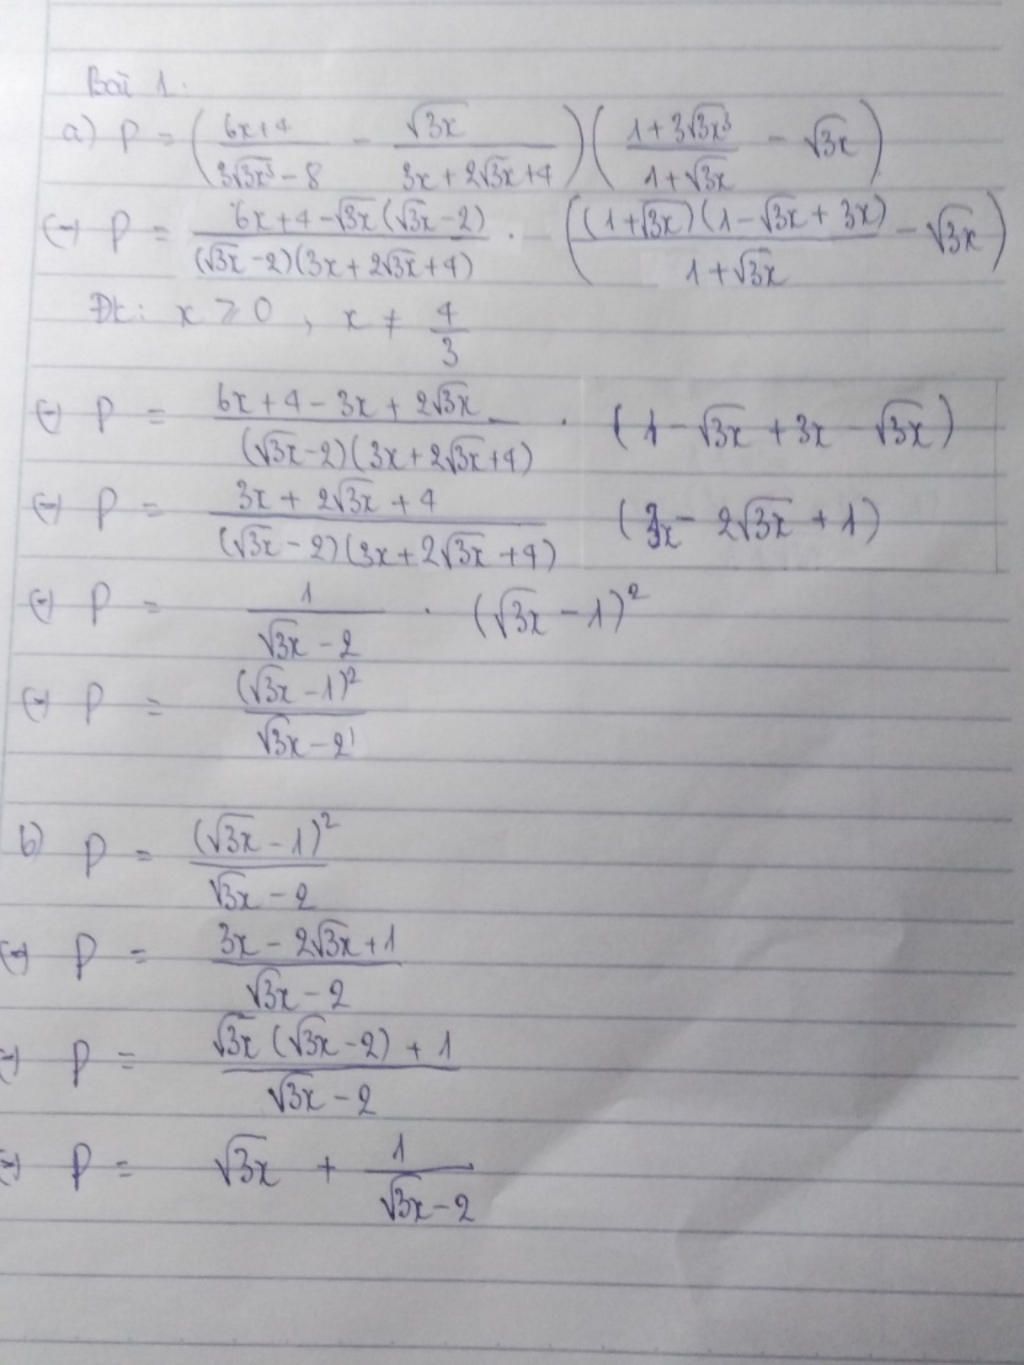 Bài 1.
a) P = ( (6x+4)/(3√3x³ - 8) - √3x/(3x + 2√3x + 4) ) ( (1 + 3√3x³)/(1 + √3x) - √3x )
(=) P = (6x + 4 - √3x (√3x - 2))/((√3x - 2)(3x + 2√3x + 4)) . ( ((1 + √3x)(1 - √3x + 3x))/(1 + √3x) - √3x )
Đk: x ≥ 0 , x ≠ 4/3
(=) P = (6x + 4 - 3x + 2√3x)/((√3x - 2)(3x + 2√3x + 4)) . (1 - √3x + 3x - √3x)
(=) P = (3x + 2√3x + 4)/((√3x - 2)(3x + 2√3x + 4)) (3x - 2√3x + 1)
(=) P = 1/(√3x - 2) . (√3x - 1)²
(=) P = (√3x - 1)²/(√3x - 2)
b) P = (√3x - 1)²/(√3x - 2)
(=) P = (3x - 2√3x + 1)/(√3x - 2)
(=) P = (√3x (√3x - 2) + 1)/(√3x - 2)
(=) P = √3x + 1/(√3x - 2)